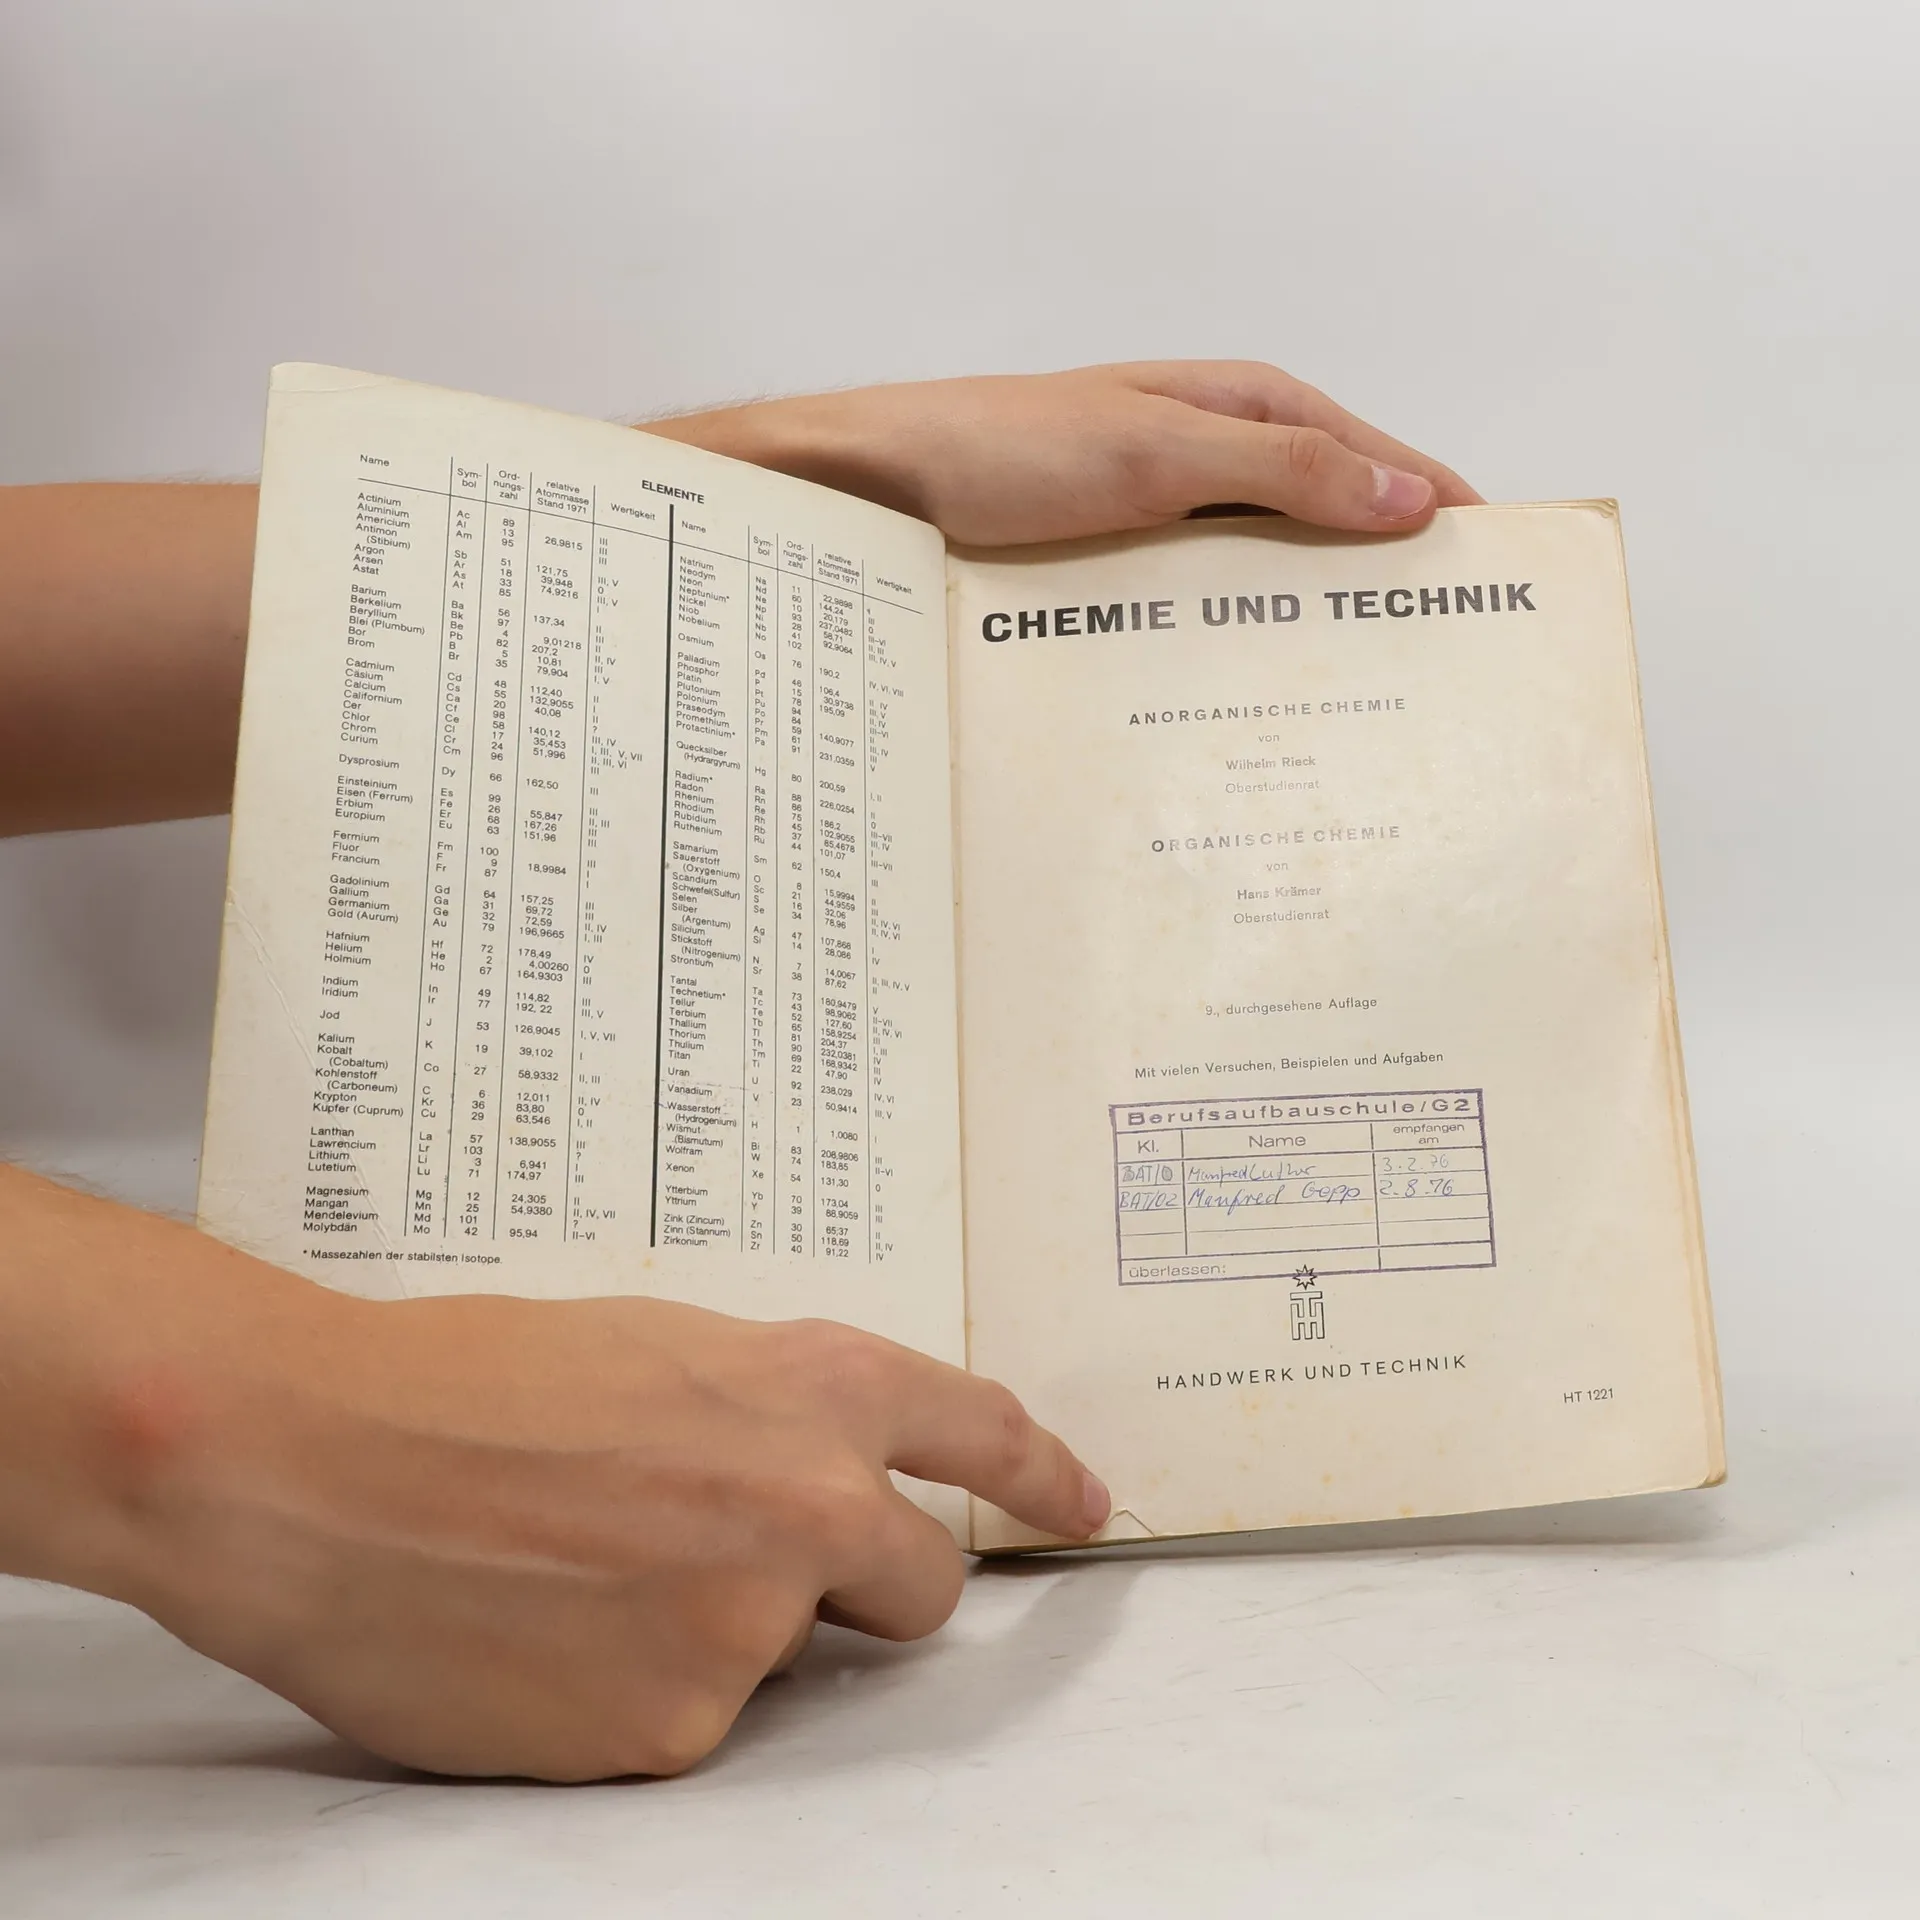 ELEMENTE
Name Sym-bol Ord-nungs-zahl relative Atommasse Stand 1971 Wertigkeit
Actinium Ac 89 III
Aluminium Al 13 26,9815 III
Americium Am 95 III
Antimon
(Stibium) Sb 51 121,75 III, V
Argon Ar 18 39,948 0
Arsen As 33 74,9216 III, V
Astat At 85 I
Barium Ba 56 137,34 II
Berkelium Bk 97 III
Beryllium Be 4 9,01218 II
Blei (Plumbum) Pb 82 207,2 II, IV
Bor B 5 10,81 III
Brom Br 35 79,904 I, V
Cadmium Cd 48 112,40 II
Cäsium Cs 55 132,9055 I
Calcium Ca 20 40,08 II
Californium Cf 98 ?
Cer Ce 58 140,12 III, IV
Chlor Cl 17 35,453 I, III, V, VII
Chrom Cr 24 51,996 II, III, VI
Curium Cm 96 III
Dysprosium Dy 66 162,50 III
Einsteinium Es 99 III
Eisen (Ferrum) Fe 26 55,847 II, III
Erbium Er 68 167,26 III
Europium Eu 63 151,96 III
Fermium Fm 100 III
Fluor F 9 18,9984 I
Francium Fr 87 I
Gadolinium Gd 64 157,25 III
Gallium Ga 31 69,72 III
Germanium Ge 32 72,59 II, IV
Gold (Aurum) Au 79 196,9665 I, III
Hafnium Hf 72 178,49 IV
Helium He 2 4,00260 0
Holmium Ho 67 164,9303 III
Indium In 49 114,82 III
Iridium Ir 77 192, 22 III, V
Jod J 53 126,9045 I, V, VII
Kalium K 19 39,102 I
Kobalt
(Cobaltum) Co 27 58,9332 II, III
Kohlenstoff
(Carboneum) C 6 12,011 II, IV
Krypton Kr 36 83,80 0
Kupfer (Cuprum) Cu 29 63,546 I, II
Lanthan La 57 138,9055 III
Lawrencium Lr 103 ?
Lithium Li 3 6,941 I
Lutetium Lu 71 174,97 III
Magnesium Mg 12 24,305 II
Mangan Mn 25 54,9380 II, IV, VII
Mendelevium Md 101 ?
Molybdän Mo 42 95,94 II-VI
* Massezahlen der stabilsten Isotope.
Name Sym-bol Ord-nungs-zahl relative Atommasse Stand 1971 Wertigkeit
Natrium Na 11 22,9898 I
Neodym Nd 60 144,24 III
Neon Ne 10 20,179 0
Neptunium* Np 93 237,0482 III-VI
Nickel Ni 28 58,71 II, III
Niob Nb 41 92,9064 III, IV, V
Nobelium No 102
Osmium Os 76 190,2 IV, VI, VIII
Palladium Pd 46 106,4 II, IV
Phosphor P 15 30,9738 III, V
Platin Pt 78 195,09 II, IV
Plutonium Pu 94 III-VI
Polonium Po 84 II
Praseodym Pr 59 140,9077 III, IV
Promethium Pm 61 III
Protactinium* Pa 91 231,0359 V
Quecksilber
(Hydrargyrum) Hg 80 200,59 I, II
Radium* Ra 88 226,0254 II
Radon Rn 86 0
Rhenium Re 75 186,2 III-VII
Rhodium Rh 45 102,9055 III, IV
Rubidium Rb 37 85,4678 I
Ruthenium Ru 44 101,07 III-VII
Samarium Sm 62 150,4 III
Sauerstoff
(Oxygenium) O 8 15,9994 II
Scandium Sc 21 44,9559 III
Schwefel(Sulfur) S 16 32,06 II, IV, VI
Selen Se 34 78,96 II, IV, VI
Silber
(Argentum) Ag 47 107,868 I
Silicium Si 14 28,086 IV
Stickstoff
(Nitrogenium) N 7 14,0067 II, III, IV, V
Strontium Sr 38 87,62 II
Tantal Ta 73 180,9479 V
Technetium* Tc 43 98,9062 II-VII
Tellur Te 52 127,60 II, IV, VI
Terbium Tb 65 158,9254 III
Thallium Tl 81 204,37 I, III
Thorium Th 90 232,0381 IV
Thulium Tm 69 168,9342 III
Titan Ti 22 47,90 IV
Uran U 92 238,029 IV, VI
Vanadium V 23 50,9414 III, V
Wasserstoff
(Hydrogenium) H 1 1,0080 I
Wismut
(Bismutum) Bi 83 208,9806 III
Wolfram W 74 183,85 II-VI
Xenon Xe 54 131,30 0
Ytterbium Yb 70 173,04 III
Yttrium Y 39 88,9059 III
Zink (Zincum) Zn 30 65,37 II
Zinn (Stannum) Sn 50 118,69 II, IV
Zirkonium Zr 40 91,22 IV
CHEMIE UND TECHNIK
ANORGANISCHE CHEMIE
von
Wilhelm Rieck
Oberstudienrat
ORGANISCHE CHEMIE
von
Hans Krämer
Oberstudienrat
9., durchgesehene Auflage
Mit vielen Versuchen, Beispielen und Aufgaben
Berufsaufbauschule/G2
Kl. Name empfangen am
Manfred 3.2.76
BAT/02 Manfred Gepp 2.8.76
überlassen:
HANDWERK UND TECHNIK
HT 1221